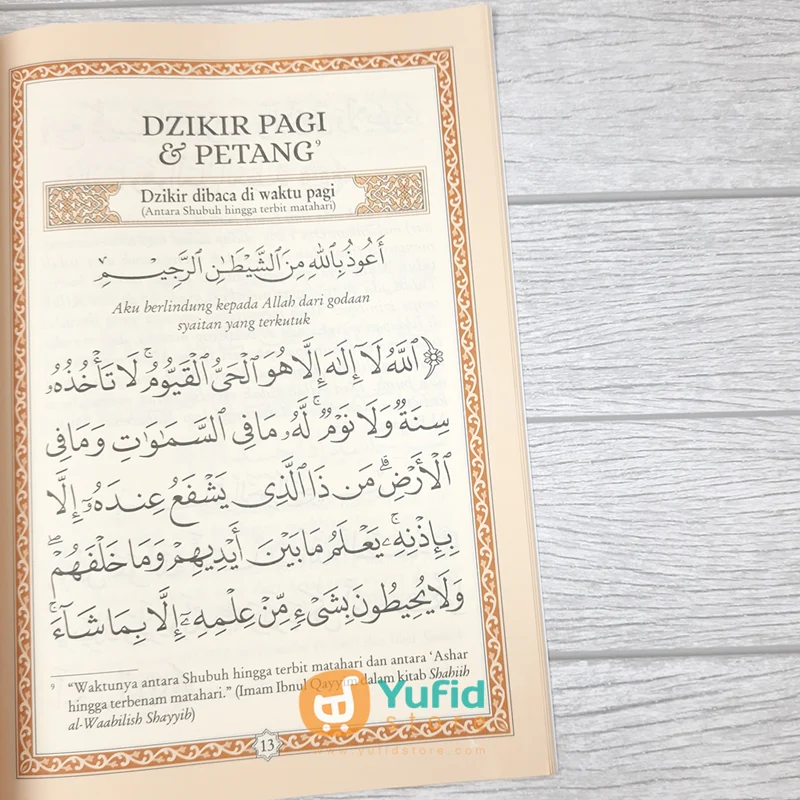 DZIKIR PAGI
& PETANG⁹
Dzikir dibaca di waktu pagi
(Antara Shubuh hingga terbit matahari)
أَعُوذُ بِاللَّهِ مِنَ الشَّيْطَٰنِ الرَّجِيمِ
Aku berlindung kepada Allah dari godaan
syaitan yang terkutuk
﴿ٱللَّهُ لَآ إِلَٰهَ إِلَّا هُوَ ٱلْحَىُّ ٱلْقَيُّومُ ۚ لَا تَأْخُذُهُۥ
سِنَةٌ وَلَا نَوْمٌ ۚ لَّهُۥ مَا فِى ٱلسَّمَٰوَٰتِ وَمَا فِى
ٱلْأَرْضِ ۗ مَن ذَا ٱلَّذِى يَشْفَعُ عِندَهُۥٓ إِلَّا
بِإِذْنِهِۦ ۚ يَعْلَمُ مَا بَيْنَ أَيْدِيهِمْ وَمَا خَلْفَهُمْ ۖ
وَلَا يُحِيطُونَ بِشَىْءٍ مِّنْ عِلْمِهِۦٓ إِلَّا بِمَا شَآءَ ۚ
⁹ “Waktunya antara Shubuh hingga terbit matahari dan antara ‘Ashar
hingga terbenam matahari.” (Imam Ibnul Qayyim dalam kitab Shahiih
al-Waabilish Shayyib)
Yufid
store
www.yufidstore.com
13